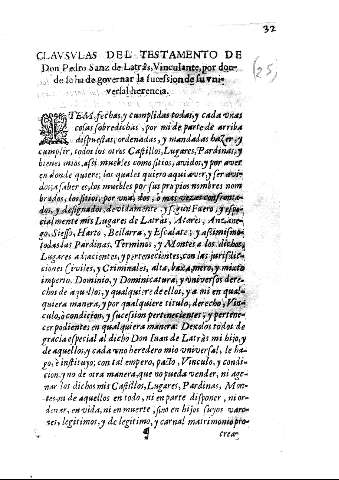 32
CLAVSVLAS DEL TESTAMENTO DE
Don Pedro Sanz de Latràs, Vinculante, por don-
de se ha de governar la sucession de su vni-
versal herencia.
(25,
ITEM, fechas, y cumplidas todas, y cada vnas
cosas sobredichas, por mi de parte de arriba
despuestas, ordenadas, y mandadas hazer, y
cumplir, todos los otros Castillos, Lugares, Pardinas, y
bienes mios, assi muebles como sitios, avidos, y por aver
en donde quiere; los quales quiero aqui aver, y ser avi-
dos, a saber es, los muebles por sus propios nombres nom
brados, los sitios, por vna, dos, ò mas vezes confronta-
dos, y designados, devidamente, y segun Fuero, y espe-
cialmente mis Lugares de Latràs, Atares,
Siesso, Harto, Bellarra, y Escalate; y assimismo
todas las Pardinas, Terminos, y Montes a los dichos
Lugares adjacientes, y pertenecientes, con las jurisdic-
ciones Civiles, y Criminales, alta, baxa, mero, y mixto
imperio, Dominio, y Dominicatura, y vniversos dere-
chos de aquellos, y qualquiere de ellos, y a mi en qual-
quiera manera, y por qualquiere titulo, derecho, Vin-
culo, ò condicion, y sucession pertenecientes, y pertene-
cer podientes en qualquiera manera: Dexolos todos de
gracia especial al dicho Don Iuan de Latràs mi hijo, y
de aquellos, y cada vno heredero mio vniversal, le ha-
go, è instituyo; con tal empero, pacto, Vinculo, y condi-
cion, y no de otra manera, que no pueda vender, ni age-
nar los dichos mis Castillos, Lugares, Pardinas, Mon-
tes, ni de aquellos en todo, ni en parte disponer, ni or-
denar, en vida, ni en muerte, sino en hijos suyos varo-
nes, legitimos, y de legitimo, y carnal matrimonio pro-
crea-